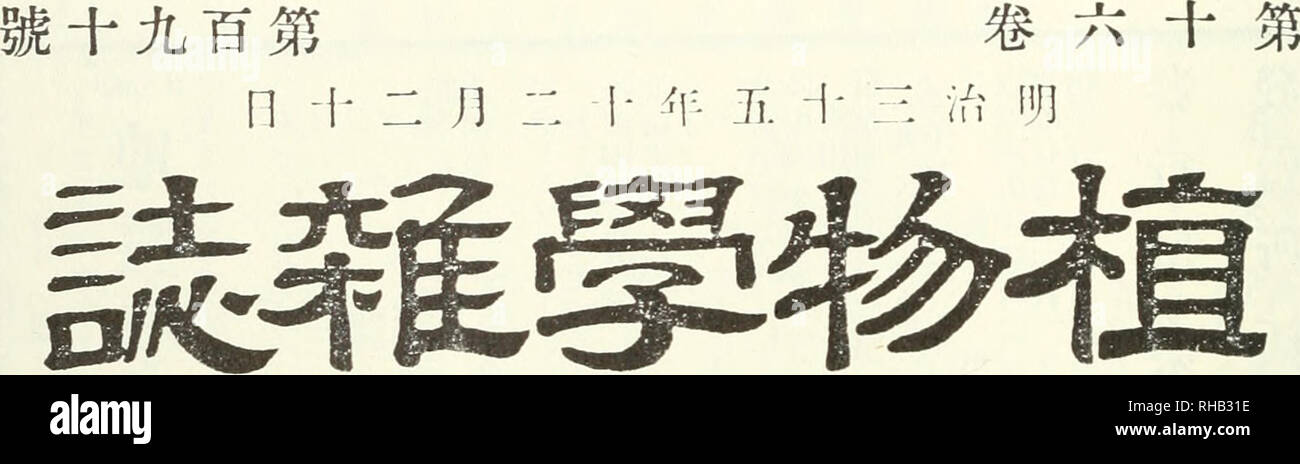 第十六卷
第百九十號
明治三十五年十二月二十日
植物學雜誌
alamy
Image ID: RHB31E
www.alamy.com